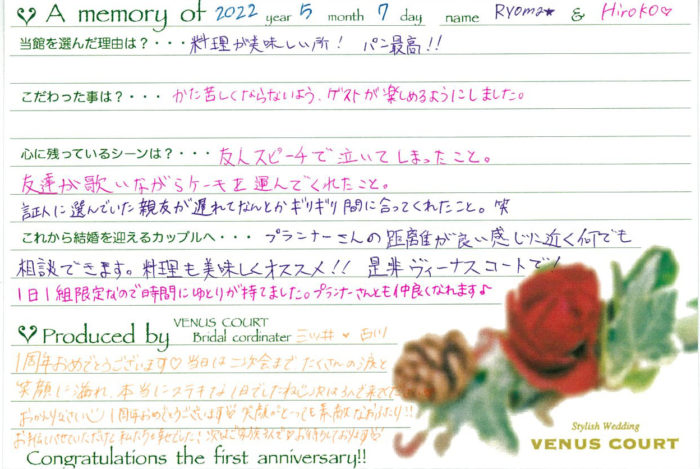 A memory of 2022 year 5 month 7 day name Ryoma★ & Hiroko♡
当館を選んだ理由は？・・・料理が美味しい所！ パン最高!!
こだわった事は？・・・かた苦しくならないよう、ゲストが楽しめるようにしました。
心に残っているシーンは？・・・友人スピーチで泣いてしまったこと。
友達が歌いながらケーキを運んでくれたこと。
証人に選んでいた親友が遅れてなんとかギリギリ間に合ってくれたこと。笑
これから結婚を迎えるカップルへ・・・プランナーさんの距離が良い感じに近く何でも
相談できます。料理も美味しくオススメ!! 是非ヴィーナスコートで!
1日1組限定なので時間にゆとりが持てました。プランナーさんとも仲良くなれます♪
Produced by VENUS COURT Bridal cordinater 三ツ井 ♥ 西川
1周年おめでとうございます♡当日は二次会までたくさんの涙と
笑顔に溢れ、本当にステキな1日でしたね
1周年おめでとうございます 笑顔がとっても素敵なおふたり!!
お手伝いさせていただけた私たちも幸せでした!
Stylish Wedding
VENUS COURT
Congratulations the first anniversary!!